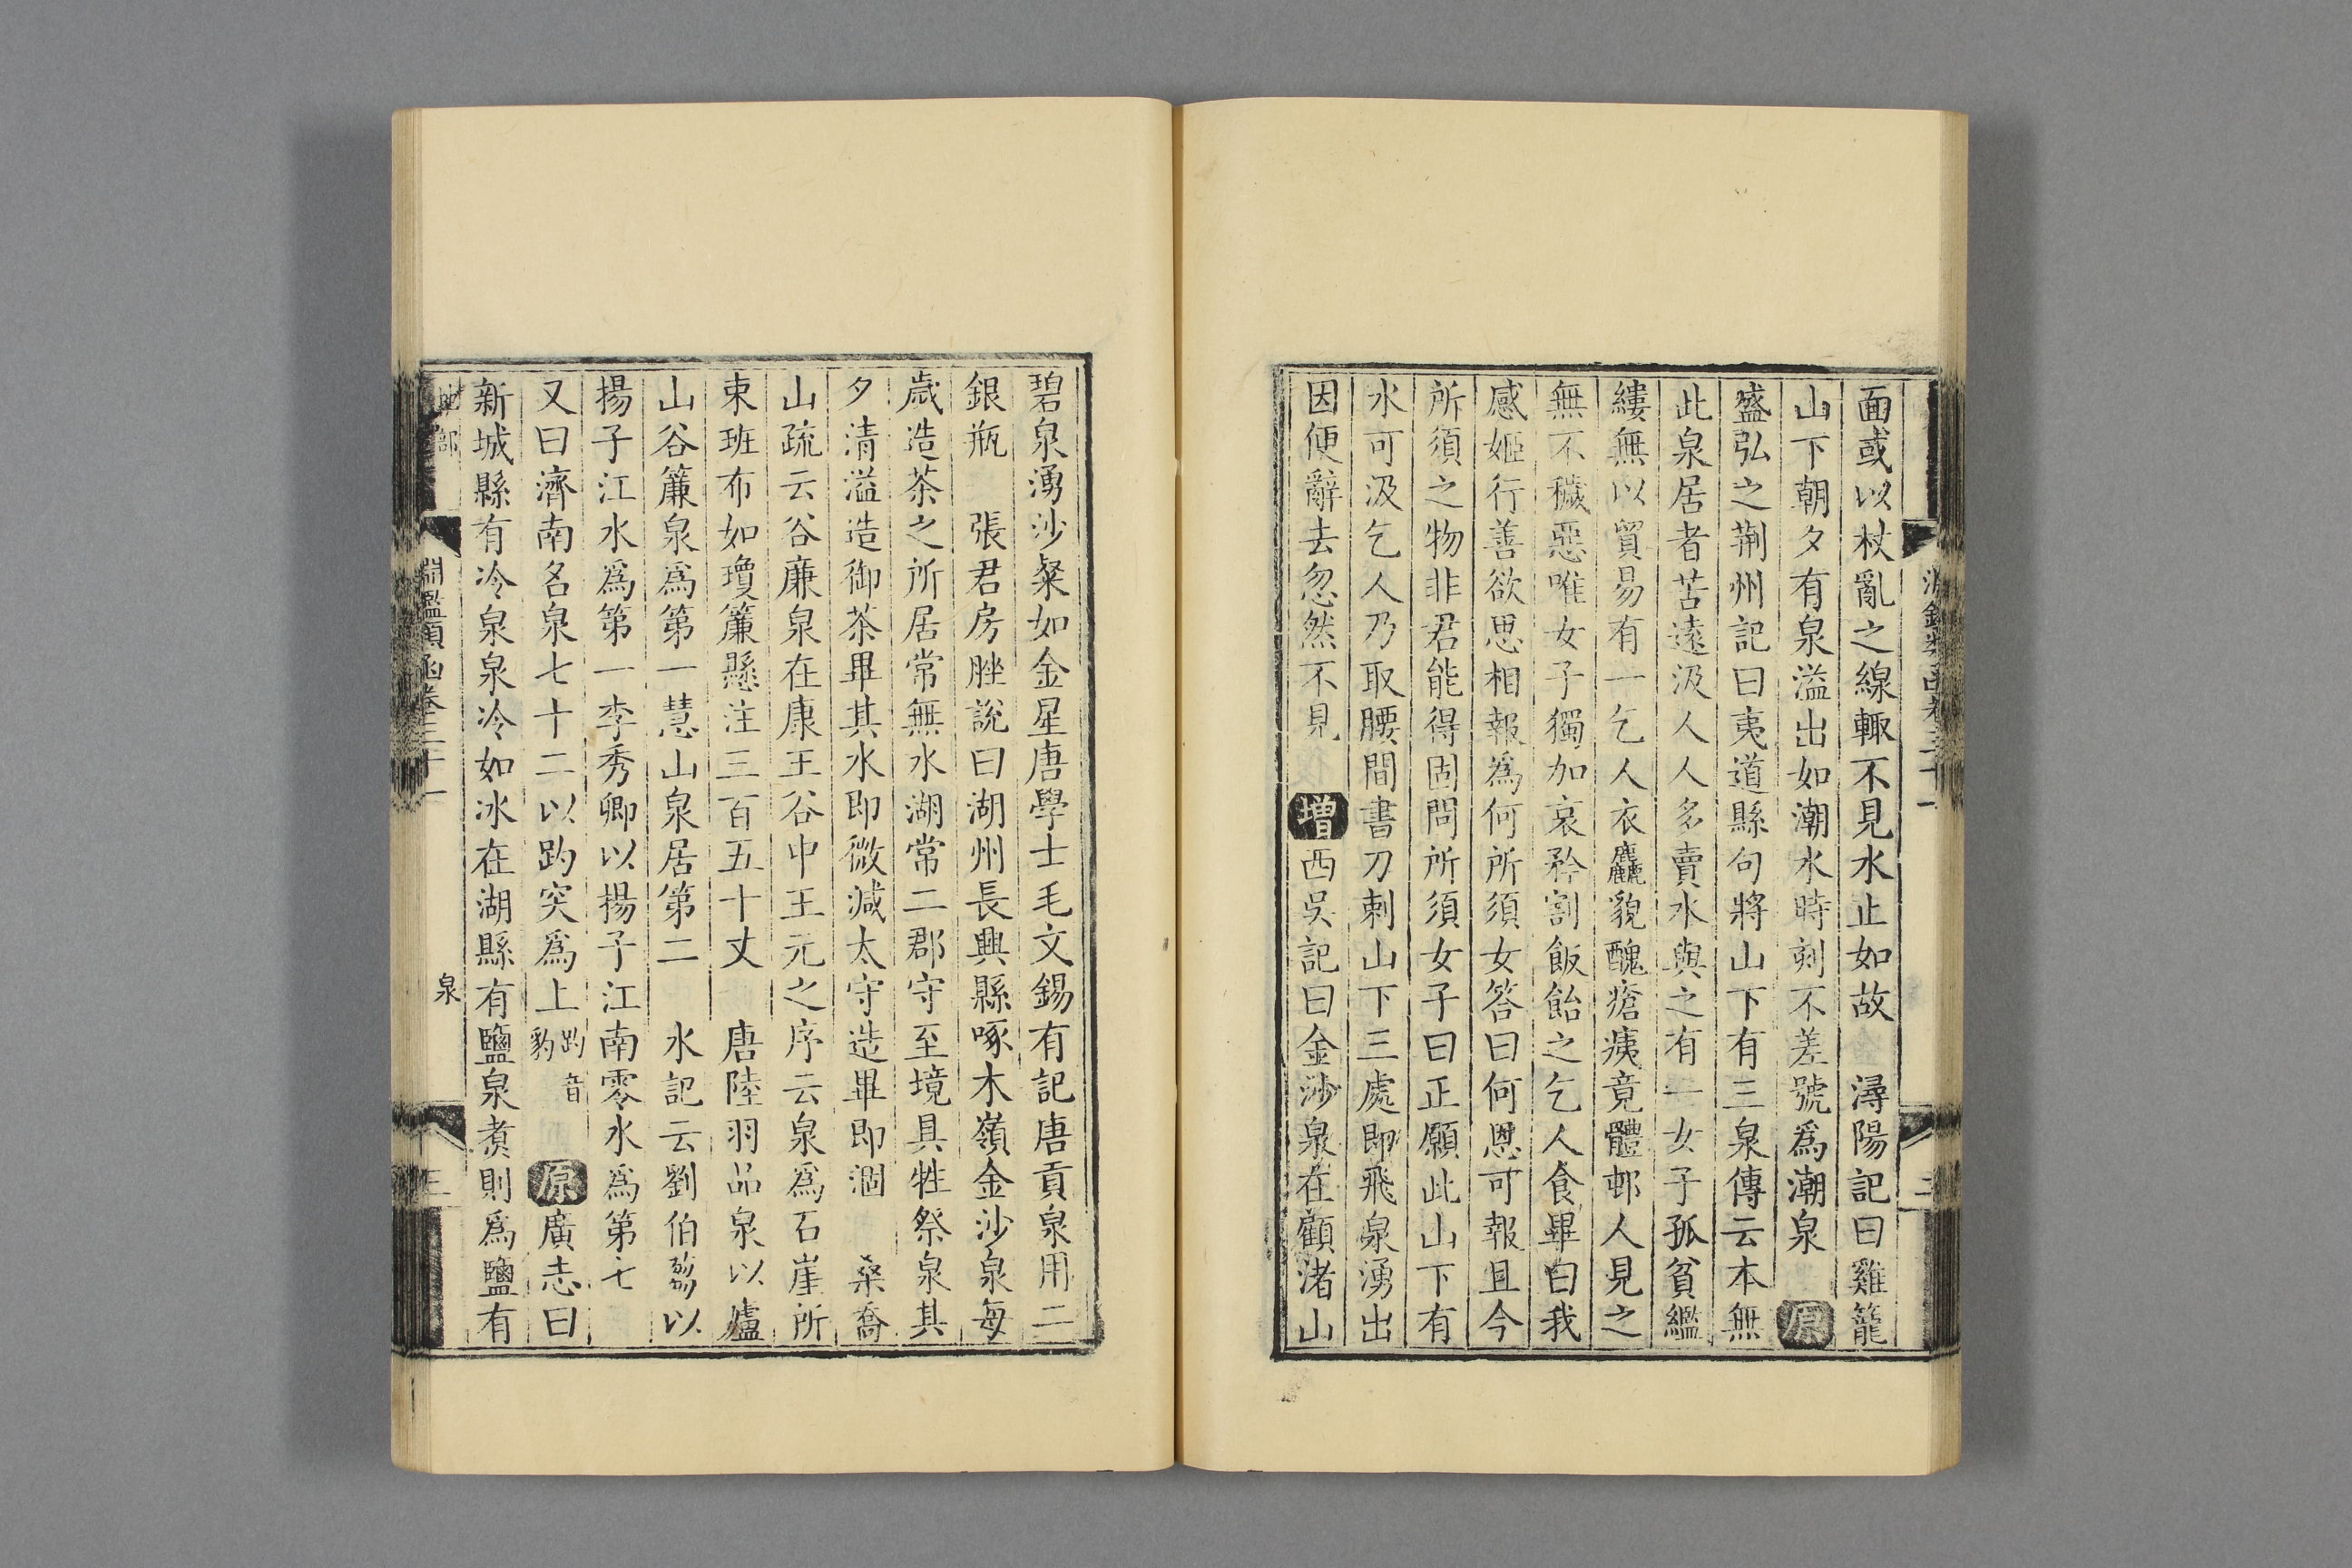 面或以杖亂之線輙不見水止如故　潯陽記曰雞籠
山下朝夕有泉溢出如潮水時刻不差號爲潮泉　原
盛弘之荆州記曰夷道縣句將山下有三泉傳云本無
此泉居者苦遠汲人人多賣水與之有一女子孤貧繿
縷無以貿易有一乞人衣麤貌醜瘡痍竟體邨人見之
無不穢惡唯女子獨加哀矜割飯飴之乞人食畢曰我
感姬行善欲思相報爲何所須女答曰何恩可報且今
所須之物非君能得固問所須女子曰正願此山下有
水可汲乞人乃取腰間書刀刺山下三處即飛泉湧出
因便辭去忽然不見　增西吳記曰金沙泉在顧渚山
碧泉湧沙粲如金星唐學士毛文錫有記唐貢泉用二
銀瓶　張君房脞說曰湖州長興縣啄木嶺金沙泉每
歲造茶之所居常無水湖常二郡守至境具牲祭泉其
夕清溢造御茶畢其水即微減太守造畢即涸　桑喬
山疏云谷廉泉在康王谷中王元之序云泉爲石崖所
束班布如瓊簾懸注三百五十丈　唐陸羽品泉以廬
山谷簾泉爲第一慧山泉居第二　水記云劉伯芻以
揚子江水爲第一李秀卿以揚子江南零水爲第七
又曰濟南名泉七十二以趵突爲上趵音豹　原廣志曰
新城縣有冷泉泉冷如冰在湖縣有鹽泉煑則爲鹽有
地部
淵鑑類函卷三十一
泉
三